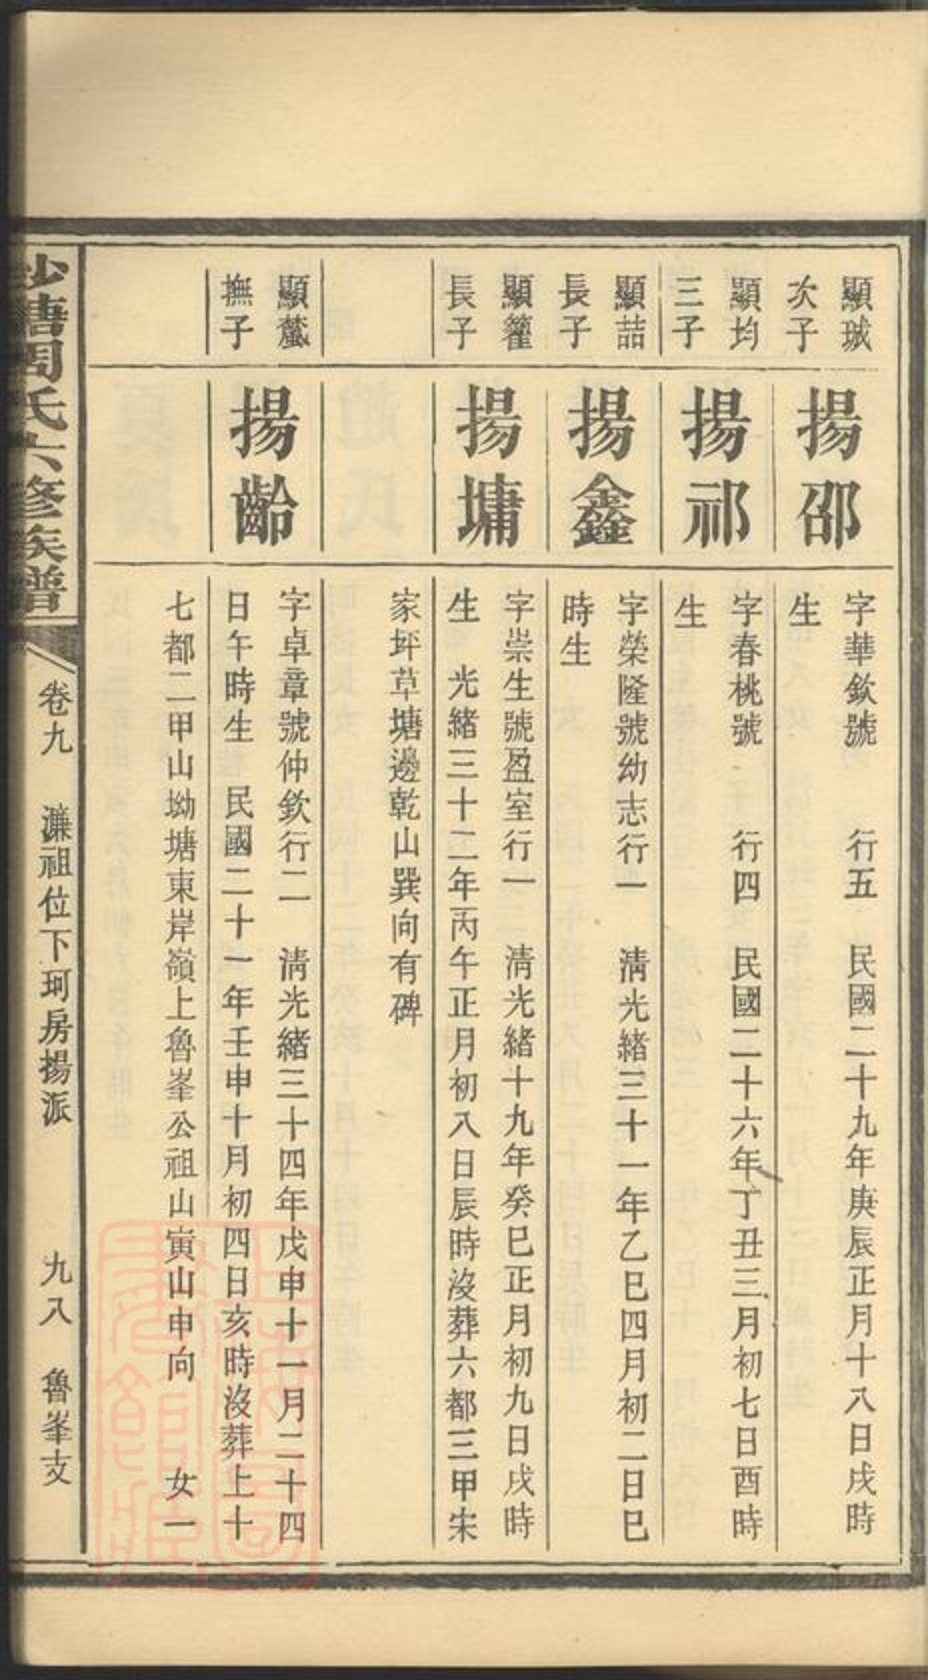 顯珹
次子
揚邵
字華欽號　行五　民國二十九年庚辰正月十八日戌時
生
顯均
三子
揚祁
字春桃號　行四　民國二十六年丁丑三月初七日酉時
生
顯喆
長子
揚鑫
字榮隆號幼志行一　清光緒三十一年乙巳四月初二日巳
時生
顯籦
長子
揚墉
字崇生號盈室行一　清光緒十九年癸巳正月初九日戌時
生　光緒三十二年丙午正月初八日辰時沒葬六都三甲宋
家坪草塘邊乾山巽向有碑
顯
撫子
揚齡
字卓章號仲欽行二　清光緒三十四年戊申十一月二十四
日午時生　民國二十一年壬申十月初四日亥時沒葬上十
七都二甲山坳塘東岸嶺上魯峯公祖山寅山申向　女一
塘周氏六修族譜
卷九　濂祖位下珂房揚派　九入　魯峯支